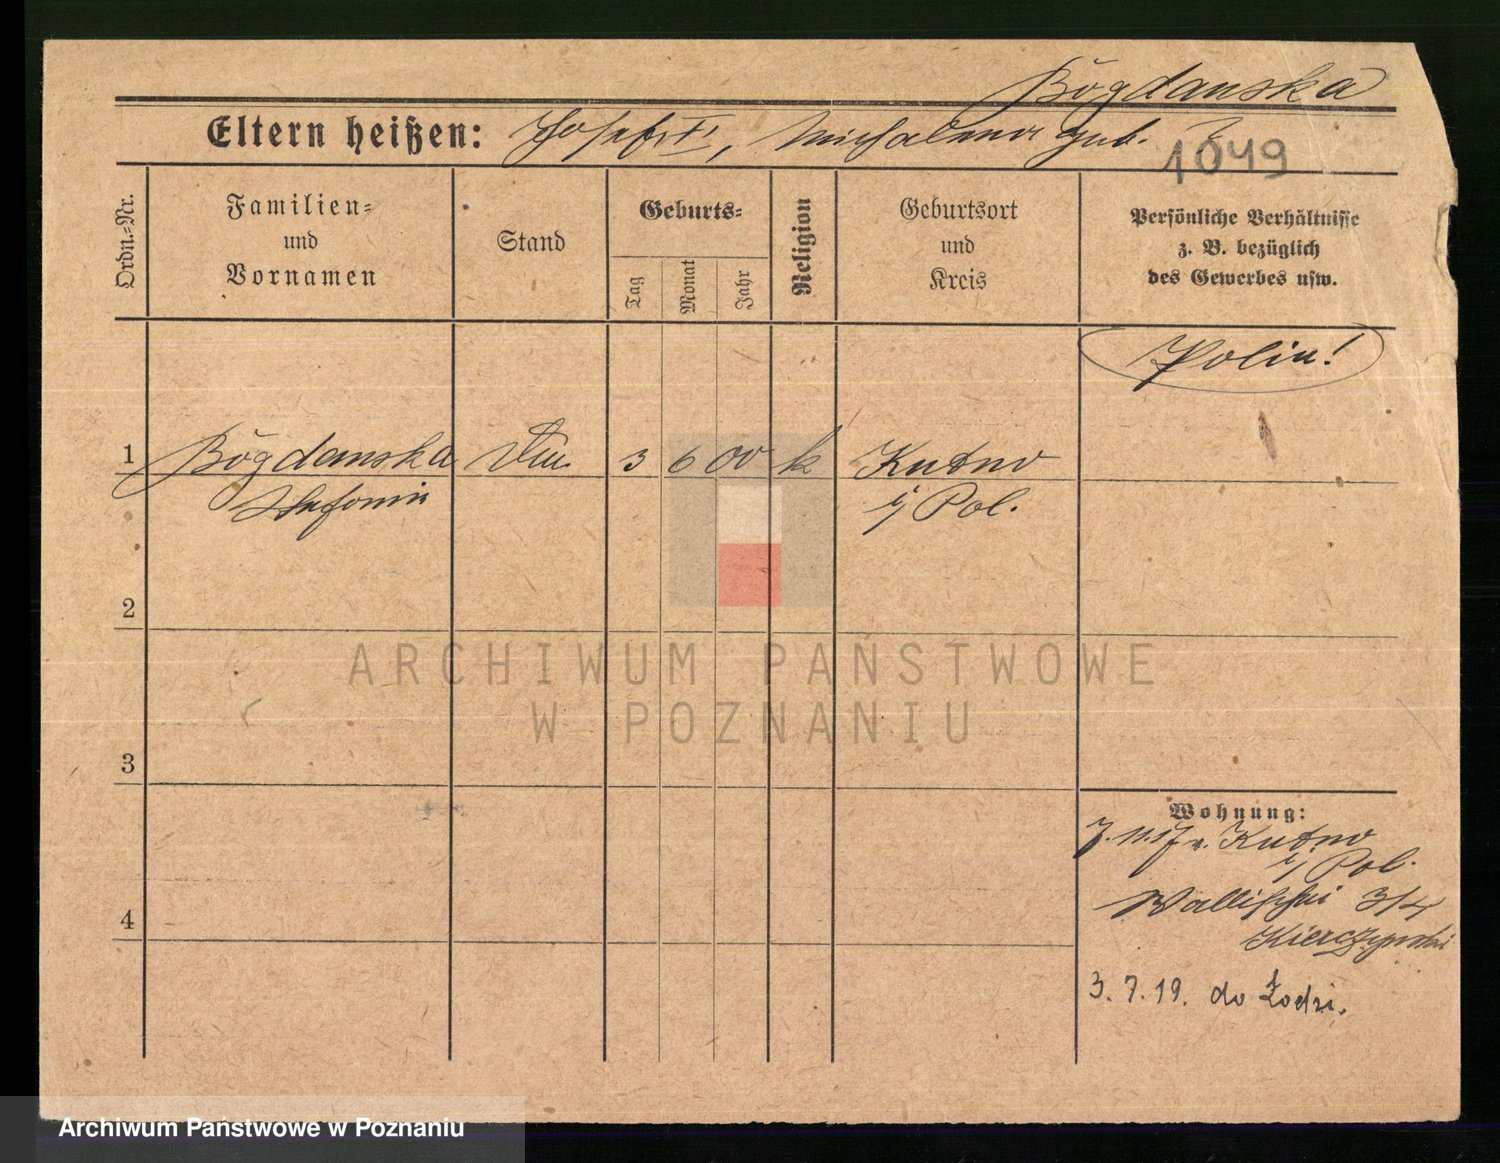 Bogdanska
Eltern heißen: Josef †, Michalina geb. ?
1049
Ordn.=Nr.
Familien=
und
Vornamen
Stand
Geburts=
Tag
Monat
Jahr
Religion
Geburtsort
und
Kreis
Persönliche Verhältnisse
z. B. bezüglich
des Gewerbes usw.
Polin!
1 Bogdanska 3 6 00 k Kutno
Stefania i/ Pol.
2
ARCHIWUM PAŃSTWOWE
W POZNANIU
3
Wohnung:
7. 11. 17 v. Kutno
i/ Pol.
4 Wallischei 3/4
3. 7. 19. do Łodzi.
Archiwum Państwowe w Poznaniu